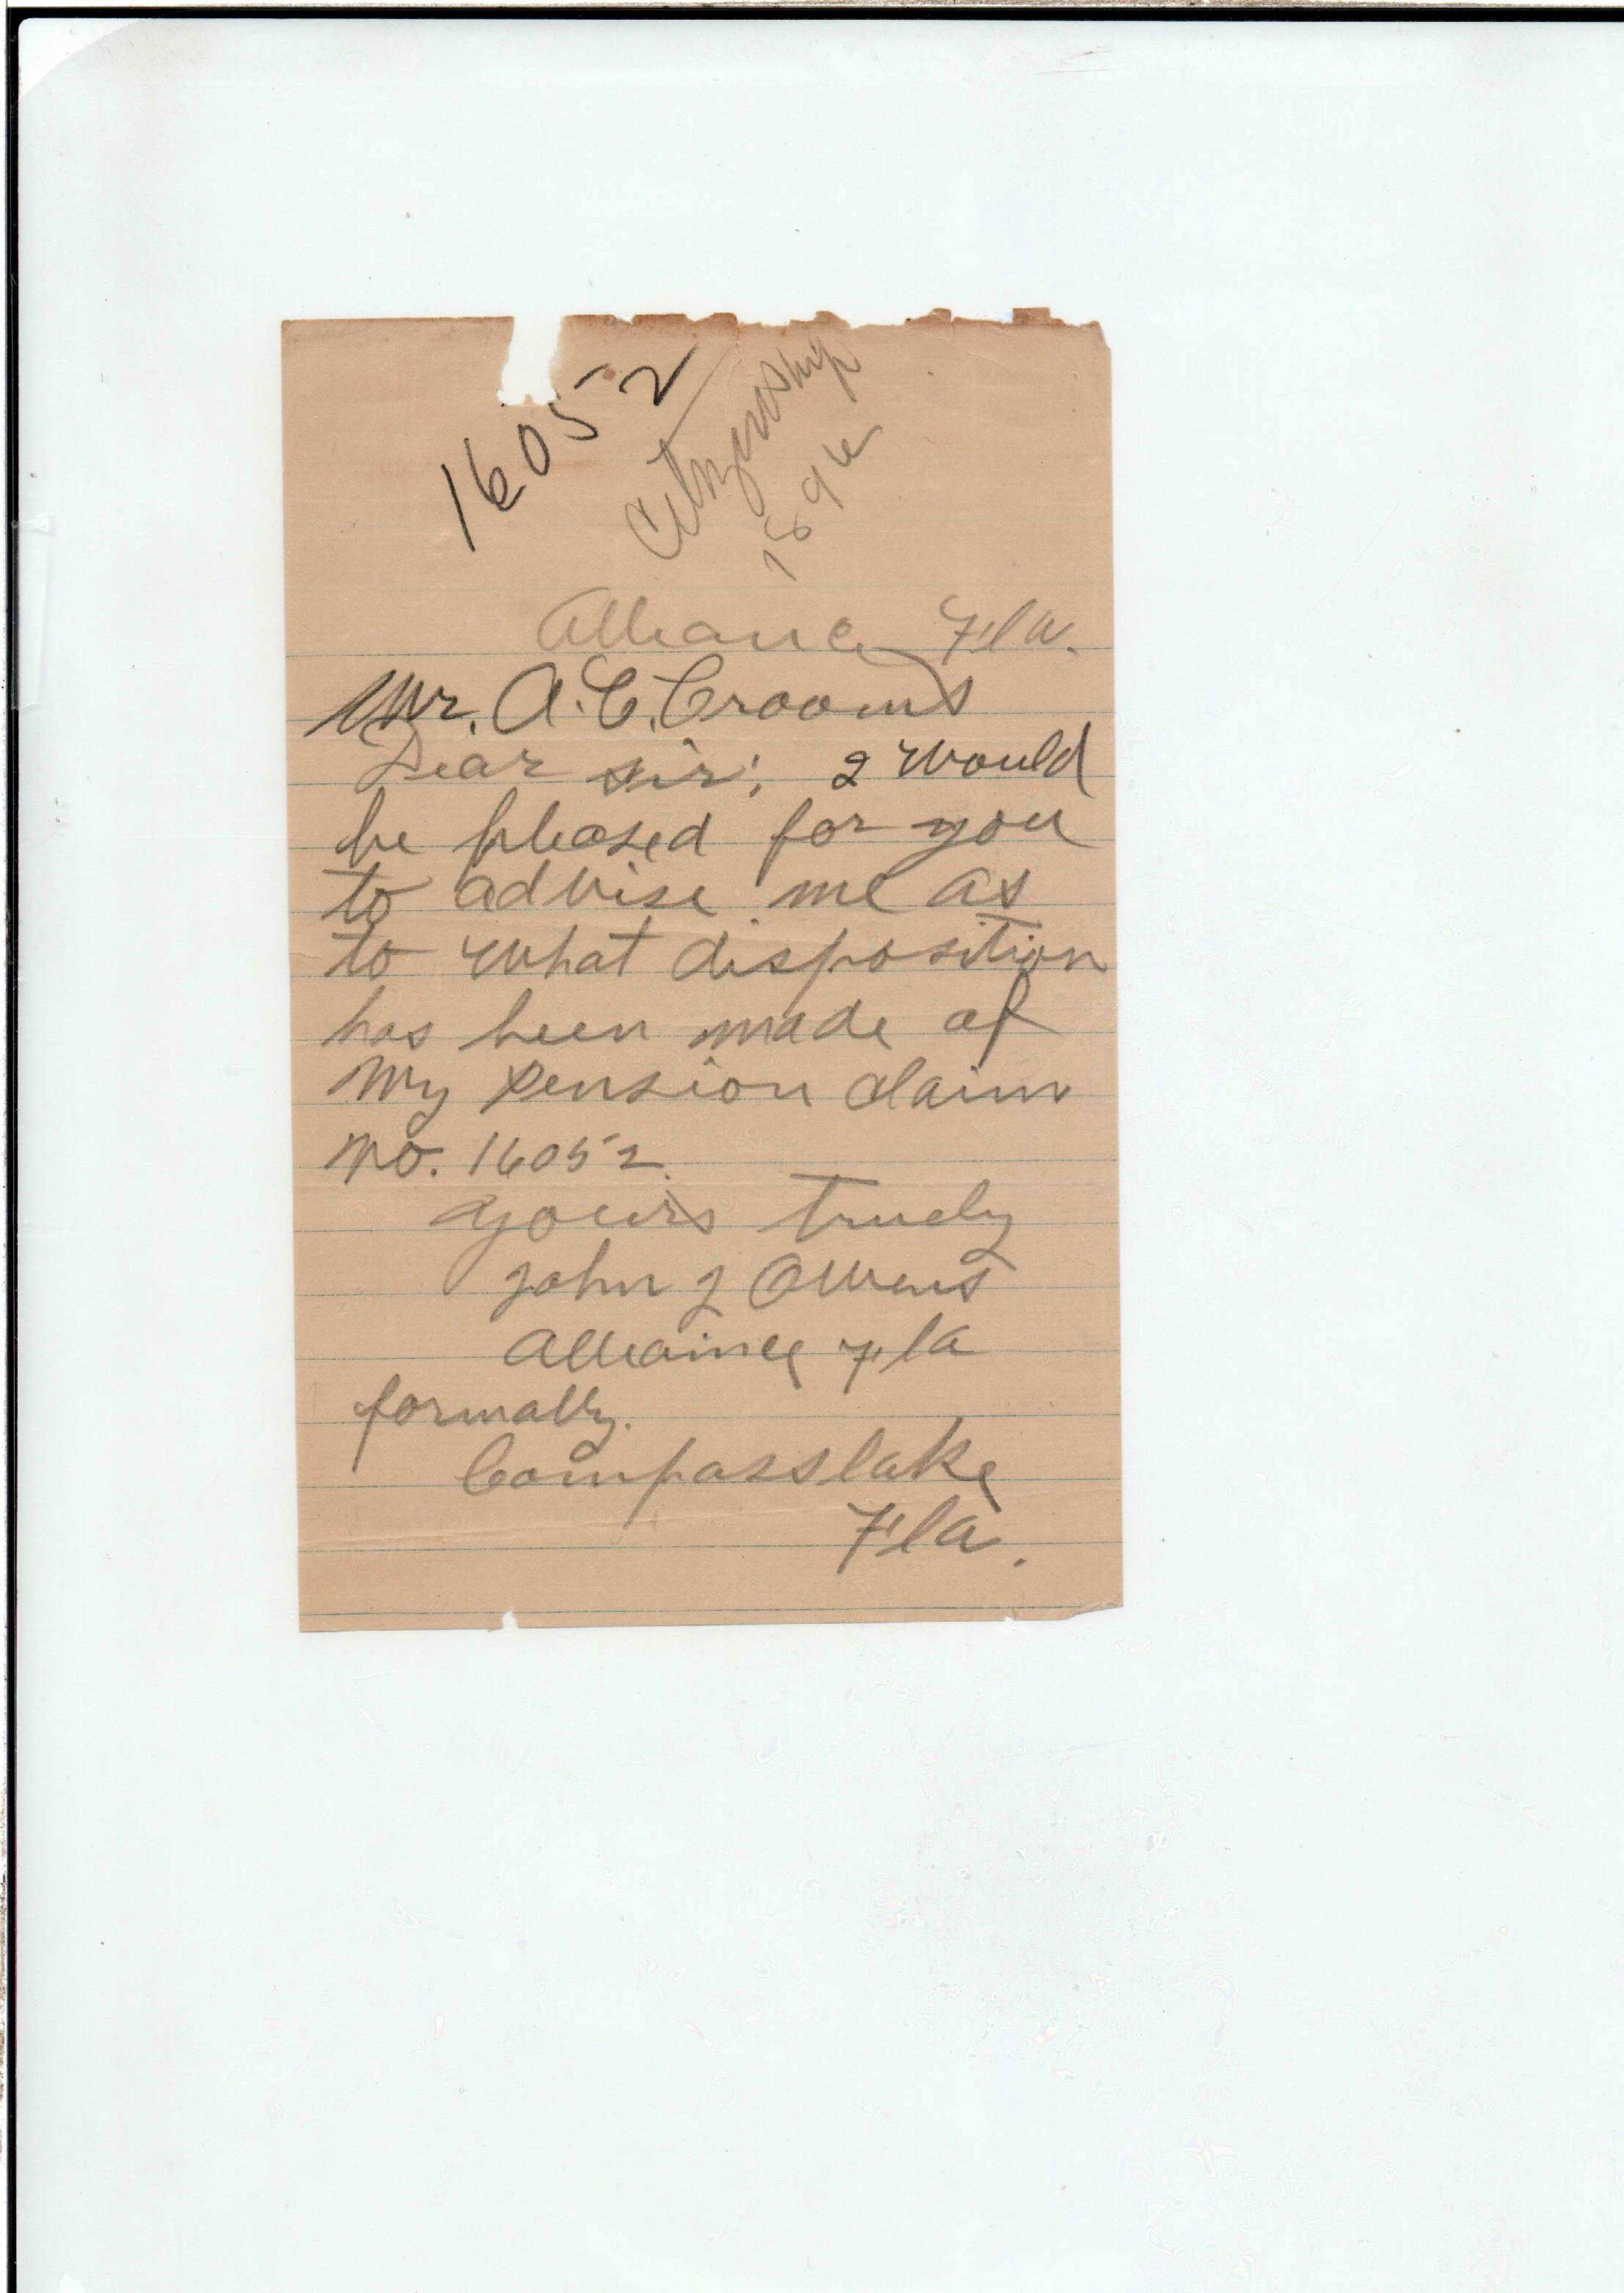 16052
Citizenship
189
Alliance Fla.
Mr. A. C. Crooms
Dear sir; I would
be pleased for you
to advise me as
to what disposition
has been made of
My Pension claim
No. 16052.
yours truely
John J Owens
Alliaince Fla
formally.
Compasslake
Fla.